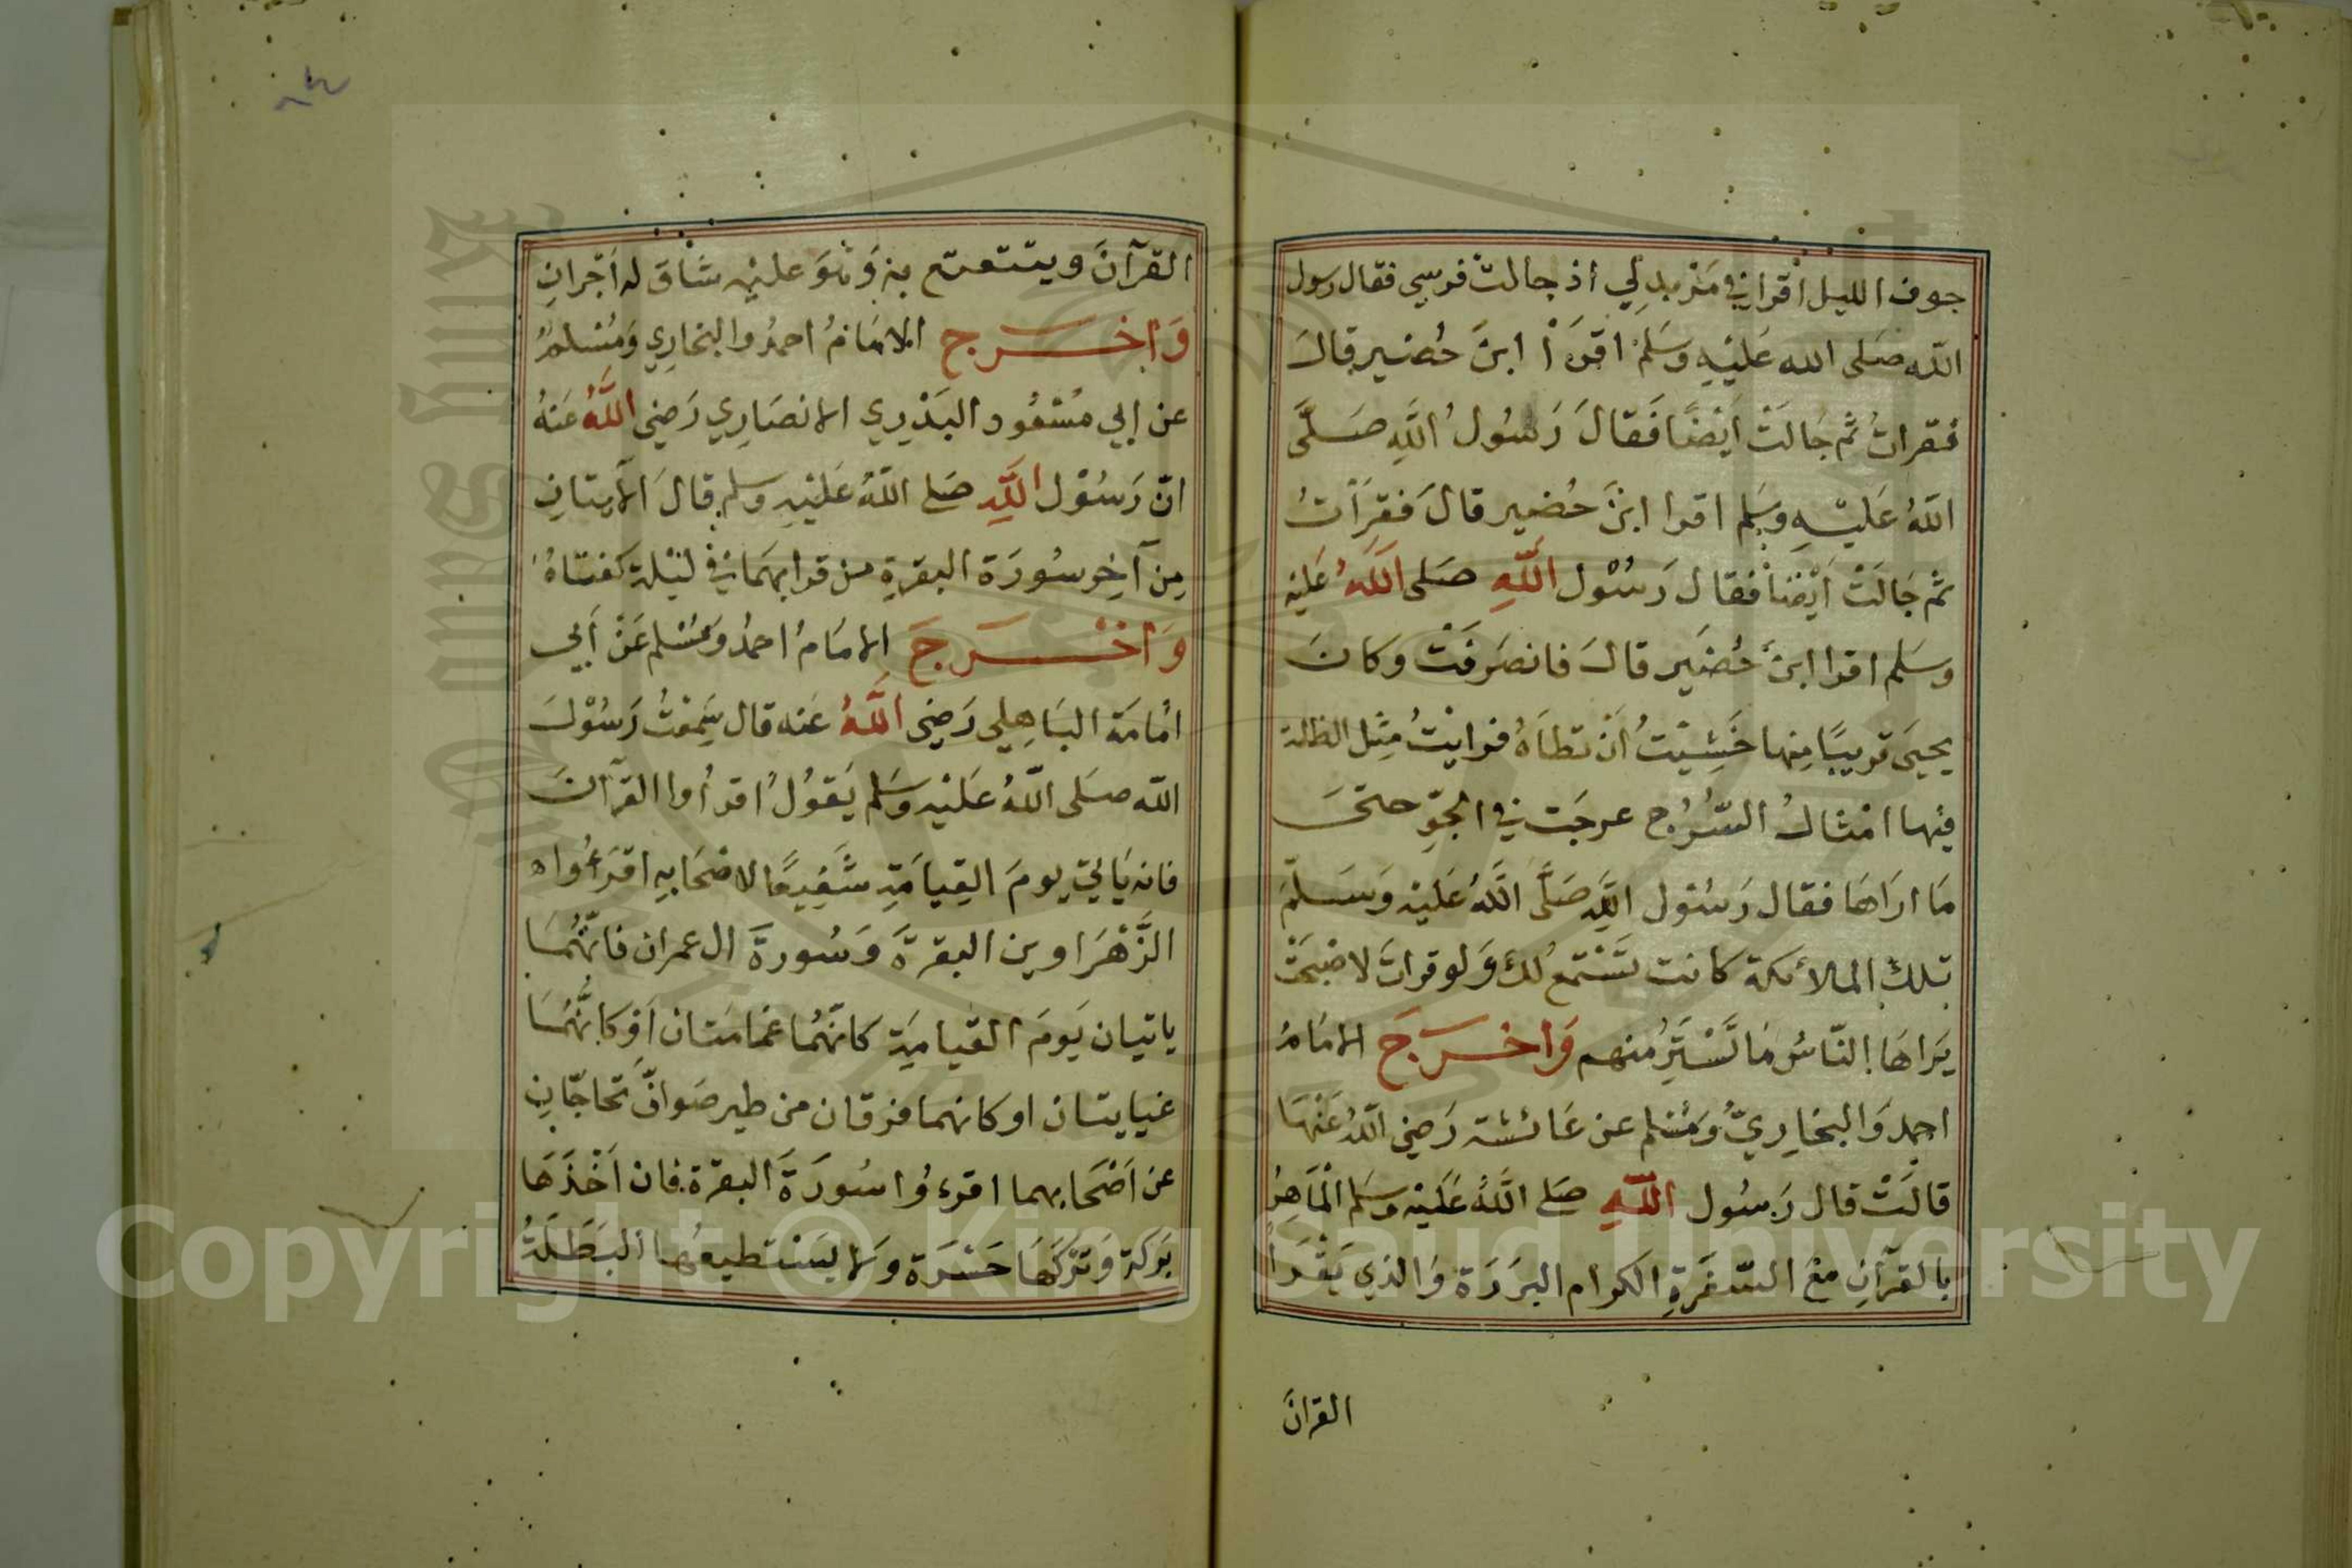 جوف الليل اقرا في مَرْبدٍ لِي اذ جالت فرسي فقال رسول
الله صَلى الله عَلَيْهِ وَسَلمْ اقرَأْ ابنَ حُضيرٍ قالَ
فقراتُ ثم جَالَتْ اَيْضًا فَقَالَ رَسُولُ اللَّهِ صَلَّى
اللهُ عَليْهِ وسَلم اقرا ابنَ حُضير قالَ فقَرَأتُ
ثم جَالَتْ اَيْضًا فقال رَسُوْل اللَّهِ صَلى اللَّهُ عَليْهِ
وسَلم اقرا ابنَ حُضَير قالَ فانصَرفَتْ وكانَ
يحيَى قريبًا مِنها خَشِيْتُ اَنْ تطاَهُ فرايْتُ مِثْل الظلة
فيْها امْثالُ السُّرُج عرجَت في الجوِّ حتىَ
مَا ارَاهَا فقال رَسُوْل اللَّهِ صَلَّى اللَّهُ عَليْهِ وَسَلّمَ
تِلكَ الملائكة كانت تَسْتَمعُ لكَ وَلو قراتَ لاصْبَحَتْ
يَراهَا النّاسُ مَا تَسْتَتِرُ منهم وَاخرَجَ الامَامُ
احمد وَالبخارِيّ وَمُسْلم عن عَائشة رَضِي اللهُ عَنْهَا
قالَتْ قال رَسُول اللَّهِ صَلى اللَّهُ عَلَيْهِ وسَلم الْمَاهِرُ
بالقرآنِ مَعَ السّفَرَةِ الكرام البرَرَة وَالذي يَقْرَأ
القرانَ
القرآنَ ويتتعتع بهِ وَهُوَ عليْهِ شَاقّ له اَجْرانِ
وَاخرَج الامَامُ احمدُ والبخاري وَمُسْلمٌ
عن ابي مسْعُود البَدْرِي الانصَارِي رَضِي اللَّهُ عَنهُ
انّ رَسُوْل اللَّهِ صَلى اللهُ عَلَيْهِ وسلم قالَ الآيتانِ
مِن آخِر سُورَة البقرةِ من قرا بهمَا في لَيْلة كفتَاهُ
وَاخْرَجَ الامَامُ احمدُ وَمُسْلم عَنْ اَبي
امَامَة البَاهِلي رَضِي اللَّهُ عَنه قال سَمِعْتُ رَسُوْلَ
الله صَلى اللهُ عَلَيْهِ وَسَلم يَقوُلُ اقرأوا القرآنَ
فانه يَاتي يومَ القِيامَةِ شَفِيعًا لاصْحَابِهِ اقرَءُوا
الزَّهْرَاوين البقرةَ وَسُورةَ ال عمران فانّهُمَا
ياتيان يَومَ القيامَةِ كانّهُما غمامَتان اَوْ كانّهُمَا
غيايتان او كانهما فرقان من طير صَوافَّ تحاجّانِ
عن اَصْحَابهما اقرءُوا سُورَةَ البقرة فان اَخْذَهَا
بَركة وَتَرْكَهَا حَسْرَة وَلا يسْتطيعُها البَطَلَةُ
Copyright © King Saud University